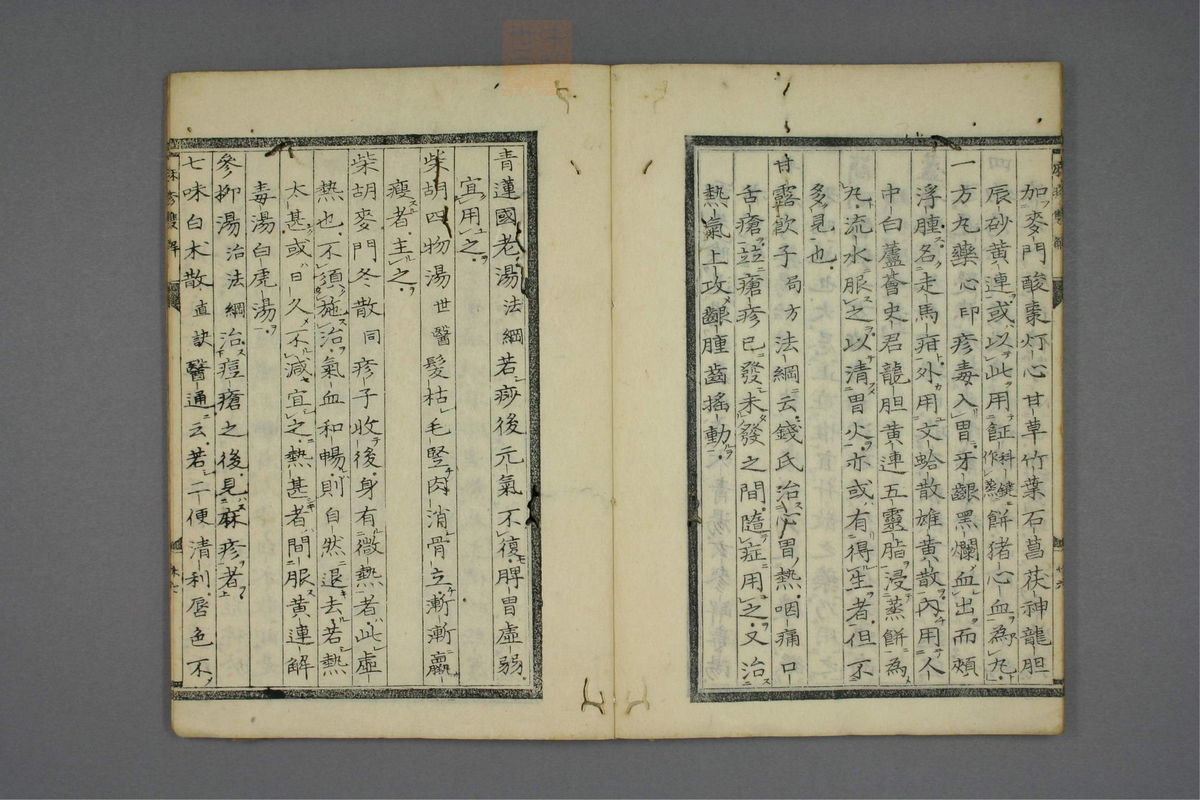 加麥門酸棗灯心甘草竹葉石菖茯神龍胆
辰砂黄連或以此用飪作蒸餅猪心血為丸
一方丸藥心印疹毒入胃牙齦黑爛血出而頰
浮腫名走馬疳外用文蛤散雄黄散內用人
中白蘆薈史君龍胆黄連五靈脂浸蒸餅為
丸流水服之以清胃火亦或有得生者但不
多見也
甘露飲子局方法綱云錢氏治心胃熱咽痛口
舌瘡並瘡疹已發未發之間隨症用之又治
熱氣上攻齦腫齒搖動
青蓮國老湯法綱若痧後元氣不復脾胃虛弱
宜用之
柴胡四物湯世醫髮枯毛竪肉消骨立漸漸羸
瘦者主之
柴胡麥門冬散同疹子收後身有微熱者此虛
熱也不須施治氣血和暢則自然退去若熱
太甚或日久不減宜之熱甚者間服黄連解
毒湯白虎湯
參柳湯治法綱治痘瘡之後見麻疹者
七味白朮散直訣醫通云若二便清利唇色不
麻疹雙解